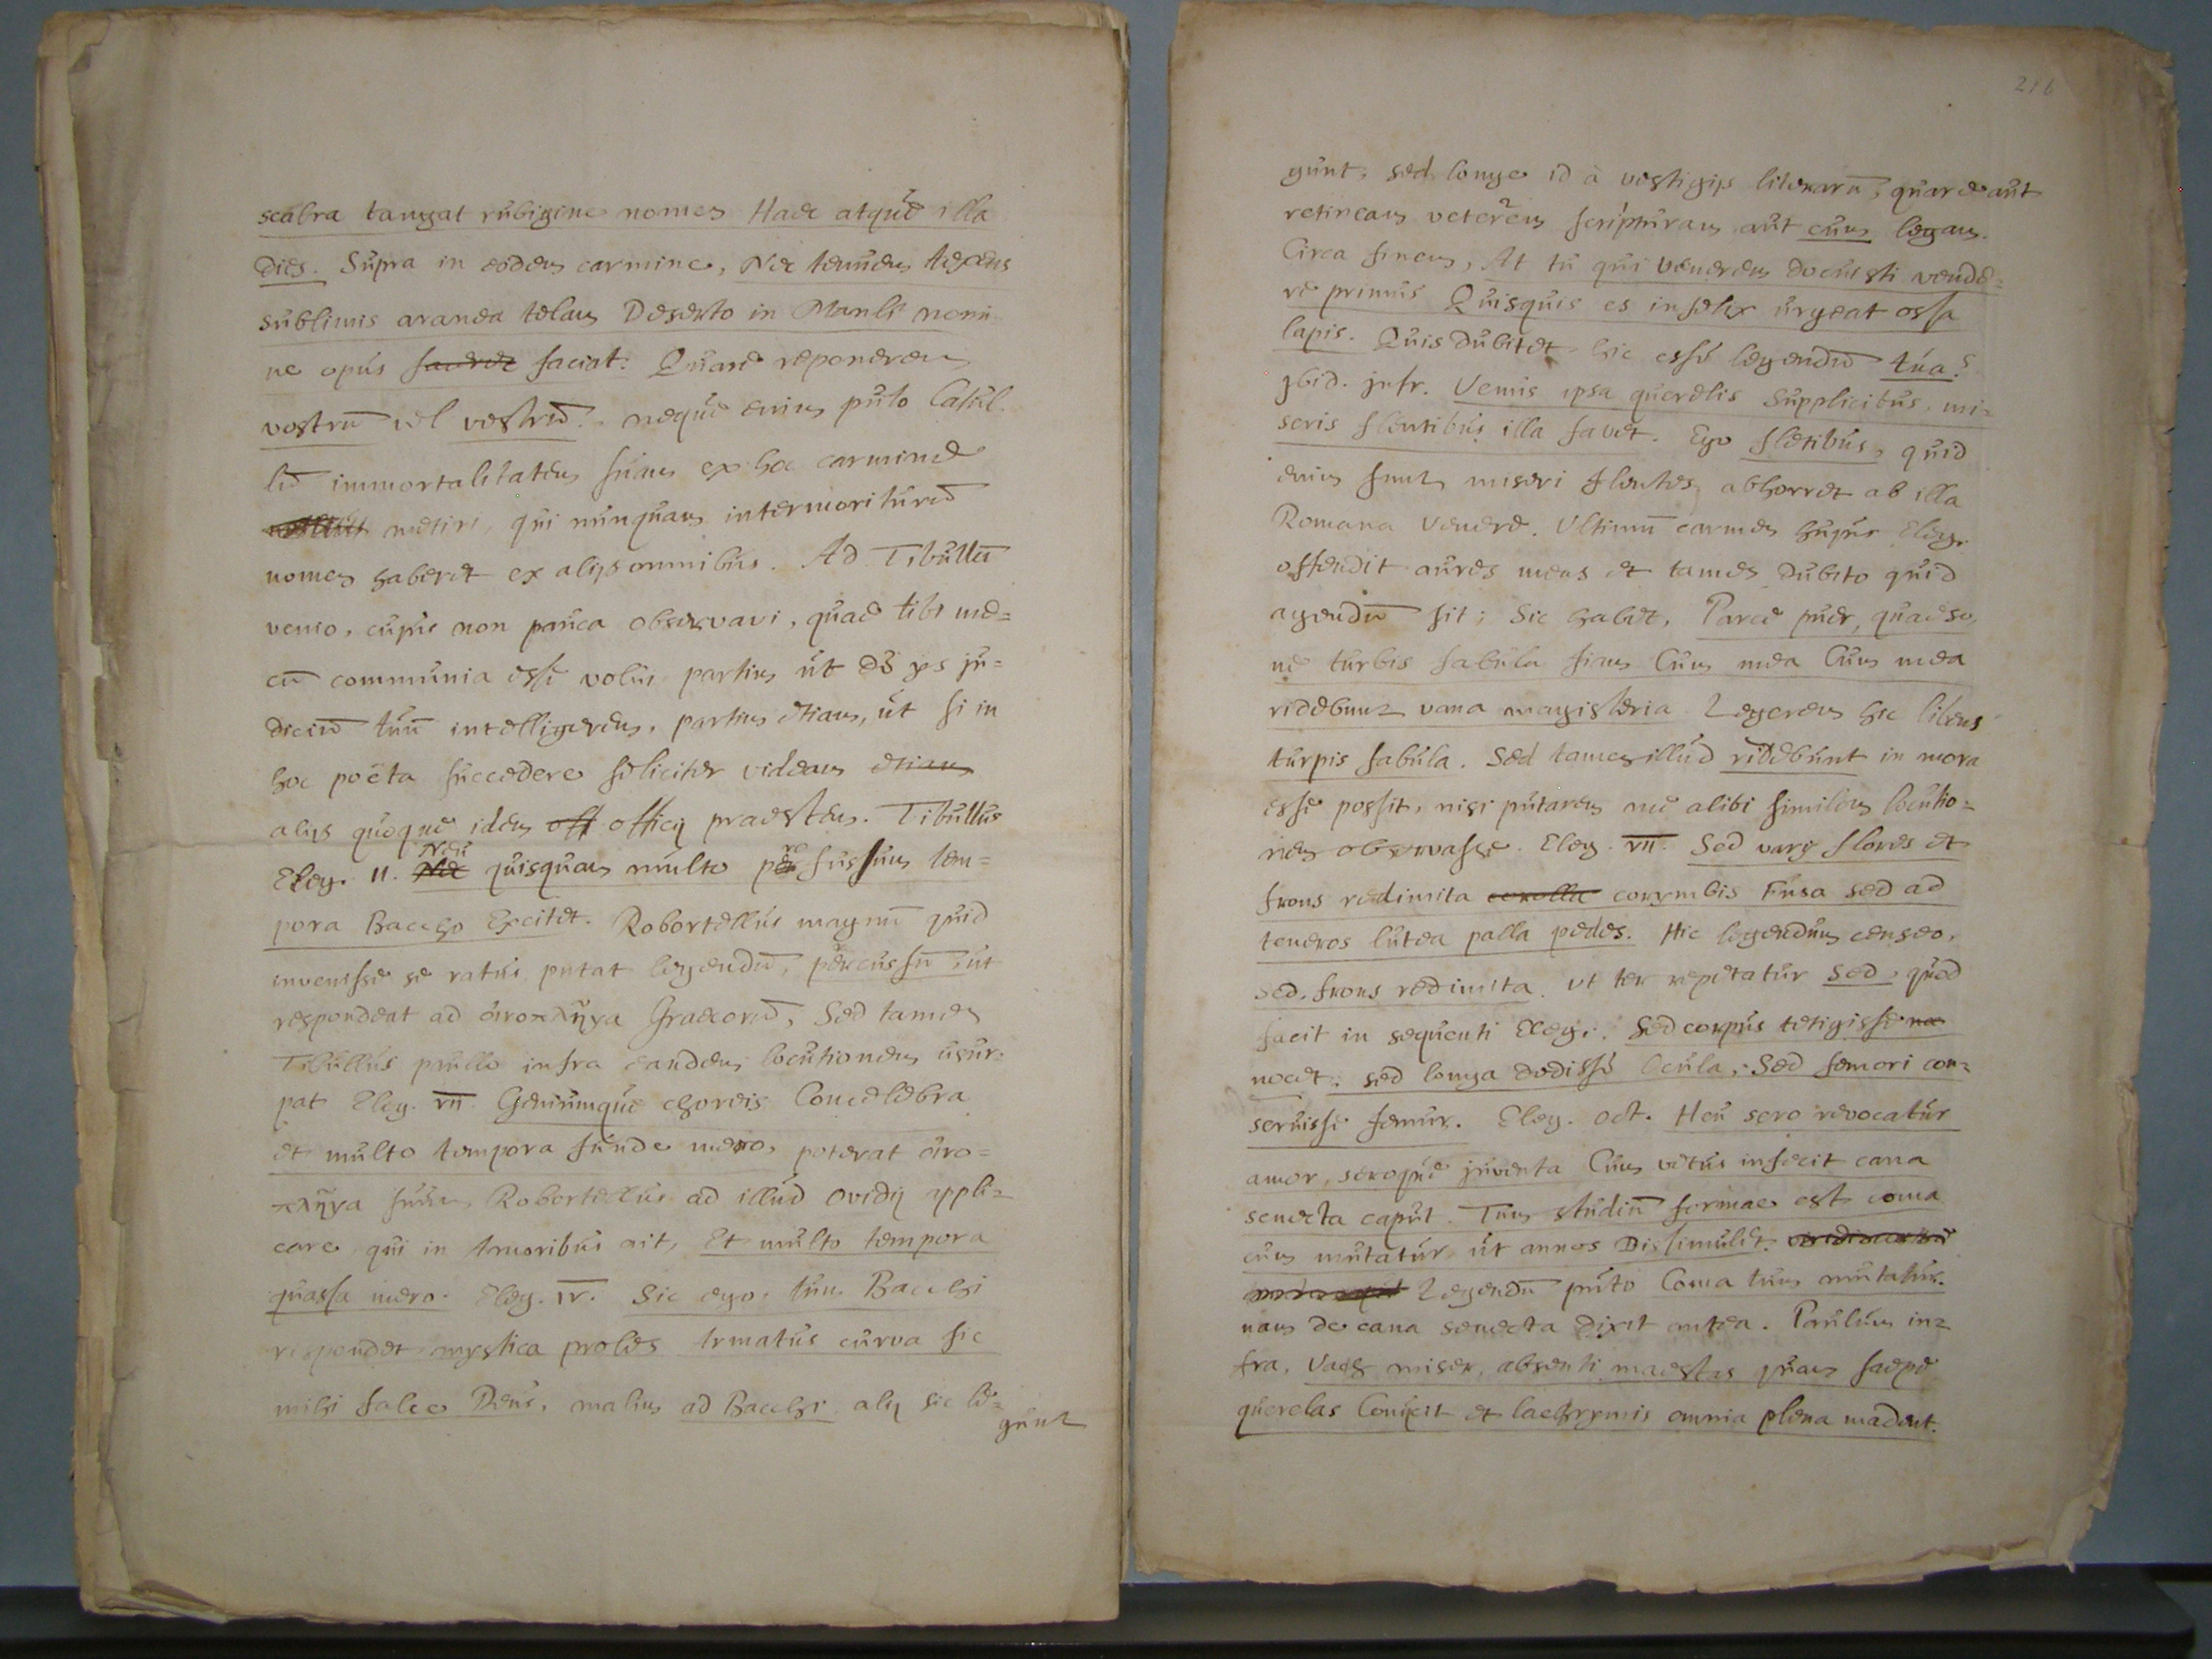 scabra tangat rubigine nomen Haec atque illa
dies. Supra in eodem carmine, Nec tenuem texens
sublimis aranea telam Deserto in Manli nomi
ne opus faciat. Quare reponerem
vostrū vel vestrū. neque enim puto Catul-
lū immortalitatem suam ex hoc carmine
metiri, qui nunquam intermoriturū
nomen haberet ex alijs omnibus. Ad Tibullū
venio, cujus non pauca observavi, quae tibi me=
cū communia esse volui partim ut de ijs ju=
diciū tuū intelligerem, partim etiam, ut si in
hoc poëta succedere feliciter videam etiam
alijs quoque idem off officij praestem. Tibullus
Eleg. II. Nec Neu quisquam multo per fussum tem=
pora Baccho Excitet. Robortellus magnū quid
invenisse se ratus putat legendū, percussū, ut
respondeat ad οἰνοπλῆγα Graecorū, Sed tamen
Tibullus paullo infra eandem locutionem usur-
pat Eleg. VII. Geniumque choreis Concelebra
et multo tempora funde mero, poterat οἰνο=
πλῆγα suum Robortellus ad illud Ovidij appli=
care, qui in amoribus ait, Et multo tempora
quassa mero. Eleg. IV. Sic ego, tum Bacchi
respondet mystica proles Armatus curva sic
mihi falce Deus, malim ad Bacchi alij sic le=
gunt
216
gunt, sed longe id à vestigijs literarū, quare aut
retineam veterem scripturam aut cum legam.
Circa finem, At tu qui venerem docuisti vende=
re primus Quisquis es infelix urgeat ossa
lapis. Quis dubitet hic esse legendū tua?
Ibid. infr. Venus ipsa querelis Supplicibus, mi=
seris flentibus illa favet. Ego fletibus, quid
enim sunt miseri flentes, abhorret ab illa
Romana Venere. Ultimū carmen hujus Eleg.
offendit aures meas et tamen dubito quid
agendū sit; Sic habet, Parce puer, quaeso,
ne turbis fabula fiam Cum mea Cum mea
ridebunt vana magisteria Legerem hic libens
turpis fabula. Sed tamen illud ridebunt in mora
esse possit, nisi putarem me alibi similem locutio=
nem observasse. Eleg. VII. Sed varij flores et
frons redimita corolla corymbis Fusa sed ad
teneros lutea palla pedes. Hic legendum censeo,
Sed, frons redimita. ut ter repetatur Sed, quod
facit in sequenti Eleg. Sed corpus tetigisse no
nocet, sed longa dedisse Oscula, Sed femori con=
seruisse femur. Eleg. oct. Heu sero revocatur
amor, seroque juventa Cum vetus infecit cana
senecta caput. Tum studiū formae est coma
cum mutatur, ut annos Dissimulet.
Legendū puto Coma tum mutatur.
nam de cana senecta dixit antea. Paulum in=
fra, Vaeh miser, absenti maestas quam saepe
querelas Conijcit et lachrymis omnia plena madent.